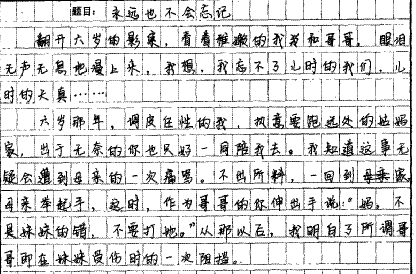 题目：永远也不会忘记
翻开六岁的影集，看着稚嫩的我和哥哥。眼泪
无声无息地漫上来，我想，我忘不了儿时的我们，儿
时的天真……
六岁那年，调皮任性的我，执意要跑远处的姑妈
家，出于无奈的你也只好一同陪我去。我知道这事无
疑会遭到母亲的一次痛骂。不出所料，一回到母亲家
母亲举起手，这时，作为哥哥的你伸出手说："妈。不
是妹妹的错，不要打她。"从那以后，我明白了所谓哥
哥即在妹妹受伤时的一次阻挡。